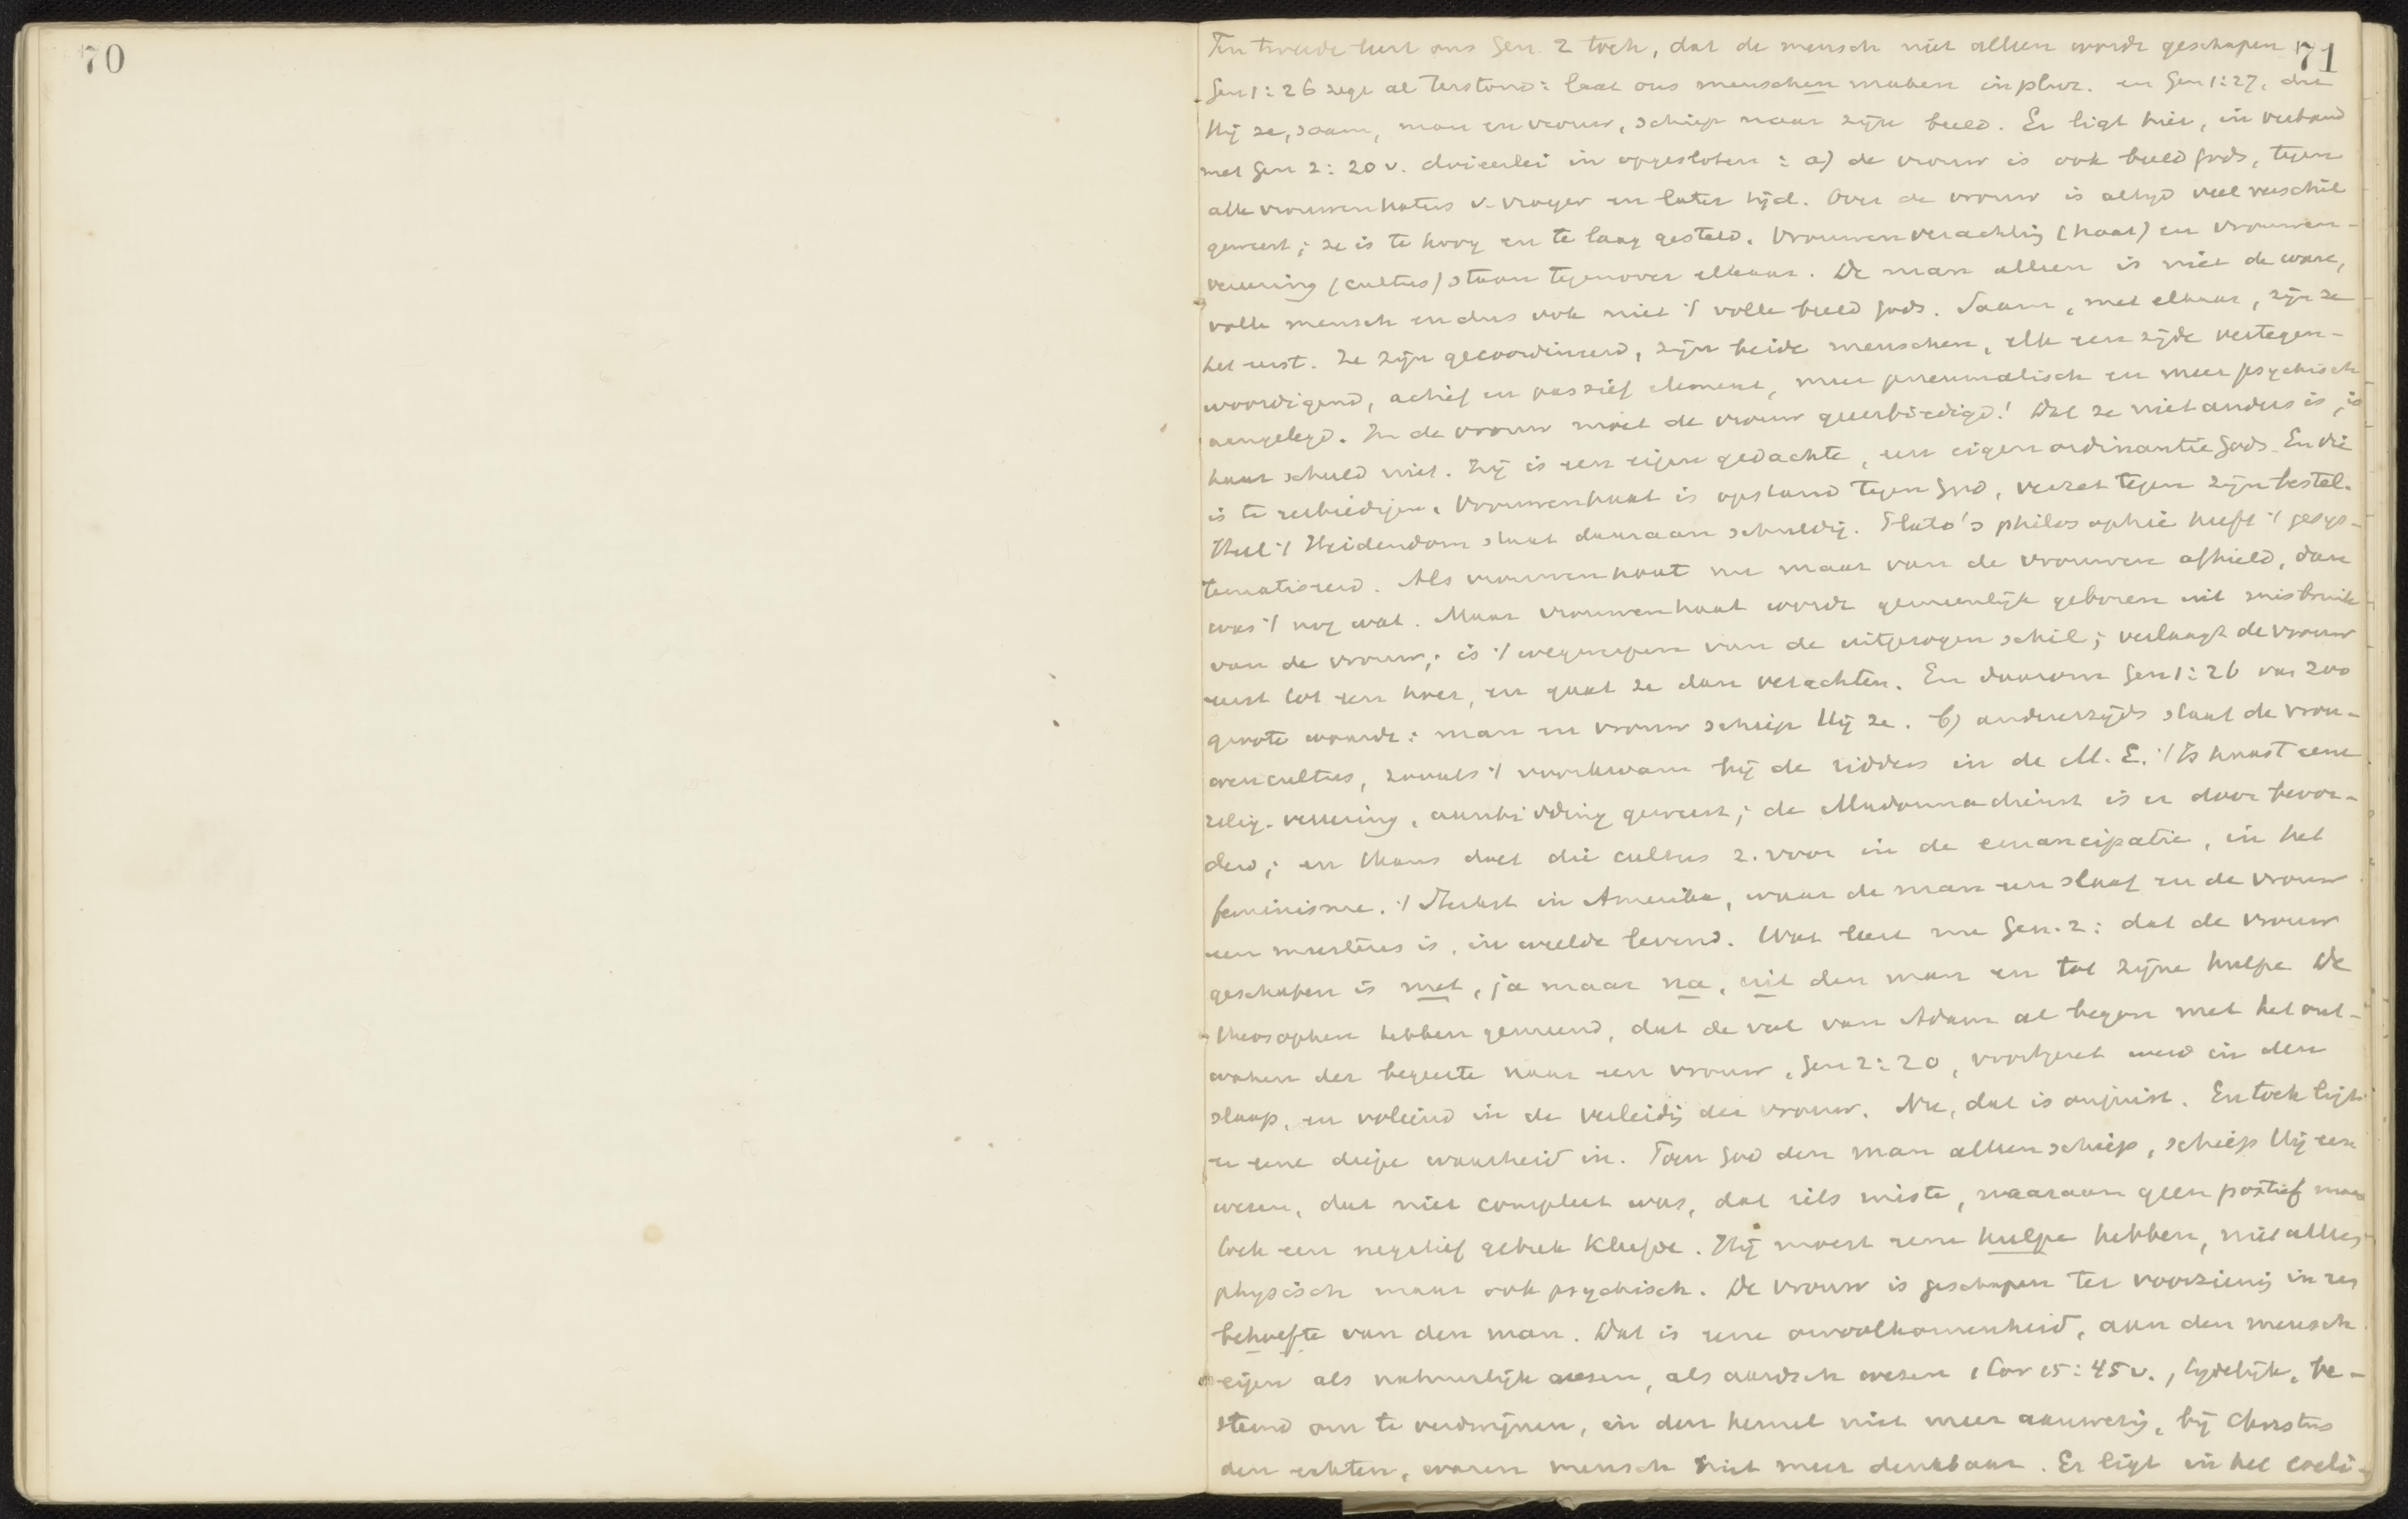 70
71
Ten tweede leert ons Gen. 2 toch, dat de mensch niet alleen wordt geschapen
Gen 1:26 zegt al terstond: laat ons menschen maken in plur. en Gen 1:27, dat
Hij ze, saam, man en vrouw, schiep naar zijn beeld. Er ligt hier, in verband
met Gen 2:20 v. drieerlei in opgesloten: a) de vrouw is ook beeld Gods, tegen
alle vrouwenhaters v. vroeger en later tijd. Over de vrouw is altijd veel verschil
geweest; ze is te hoog en te laag gesteld. Vrouwenverachting (haat) en vrouwen-
vereering (cultus) staan tegenover elkaar. De man alleen is niet de ware,
volle mensch en dus ook niet 't volle beeld Gods. Saam, met elkaar, zijn ze
het eerst. Ze zijn gecoordineerd, zijn beide menschen, elk een zijde vertegen-
woordigend, actief en passief element, meer pneumatisch en meer psychisch
aangelegd. In de vrouw moet de vrouw geeerbiedigd! Dat ze niet anders is, is
haar schuld niet. Zij is een eigen gedachte, een eigen ordinantie Gods. En die
is te eerbiedigen. Vrouwenhaat is opstand tegen God, verzet tegen zijn bestel.
Heel 't Heidendom staat daaraan schuldig. Plato's philosophie heeft 't gesys-
tematiseerd. Als vrouwenhaat nu maar van de vrouwen afhield, dan
was 't nog wat. Maar vrouwenhaat wordt gemeenlijk geboren uit misbruik
van de vrouw; is 't wegwerpen van de uitgezogen schil; verlaagt de vrouw
eerst tot een hoer, en gaat ze dan verachten. En daarom Gen 1:26 van zoo
groote waarde: man en vrouw schiep Hij ze. b) anderzijds staat de vrou-
wencultus, zooals 't voorkwam bij de ridders in de M.E. 't Is haast eene
relig. vereering, aanbidding geweest; de Madonnadienst is er door bevor-
derd; en thans doet die cultus z. voor in de emancipatie, in het
feminisme. 't Sterkst in Amerika, waar de man een slaaf en de vrouw
een meesteres is, in weelde levend. Wat leert nu Gen. 2: dat de vrouw
geschapen is met, ja maar na, uit den man en tot zijne hulpe De
theosophen hebben gemeend, dat de val van Adam al begon met het ont-
waken der begeerte naar een vrouw, Gen 2:20, voortgezet werd in den
slaap, en voleind in de verleidg der vrouw. Nu, dat is onjuist. En toch ligt
er eene diepe waarheid in. Toen God den man alleen schiep, schiep Hij een
wezen, dat niet compleet was, dat iets miste, waaraan geen positief maar
toch een negatief gebrek kleefde. Hij moest eene hulpe hebben, niet alleen
physisch maar ook psychisch. De vrouw is geschapen ter voorziening in een
behoefte van den man. Dat is eene onvolkomenheid, aan den mensch
eigen als natuurlijk wezen, als aardsch wezen 1 Cor 15:45 v., tijdelijk, be-
stemd om te verdwijnen, in den hemel niet meer aanwezig, bij Christus
den echten, waren mensch niet meer denkbaar. Er ligt in het coeli-